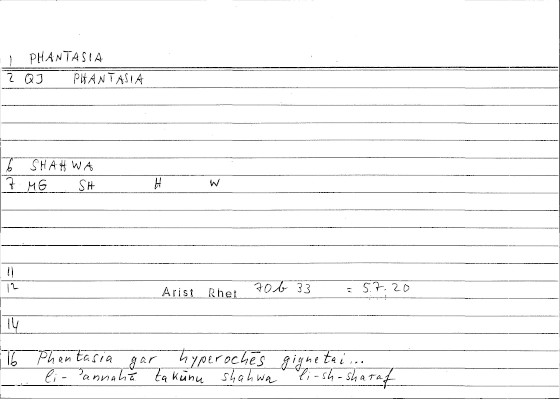 1 PHANTASIA
2 QJ PHANTASIA
6 SHAHWA
7 MG SH H W
11
12 Arist Rhet 70b 33 = 57.20
14
16 Phantasia gar hyperochēs gignetai...
li-'annahā takūnu shahwa li-sh-sharaf